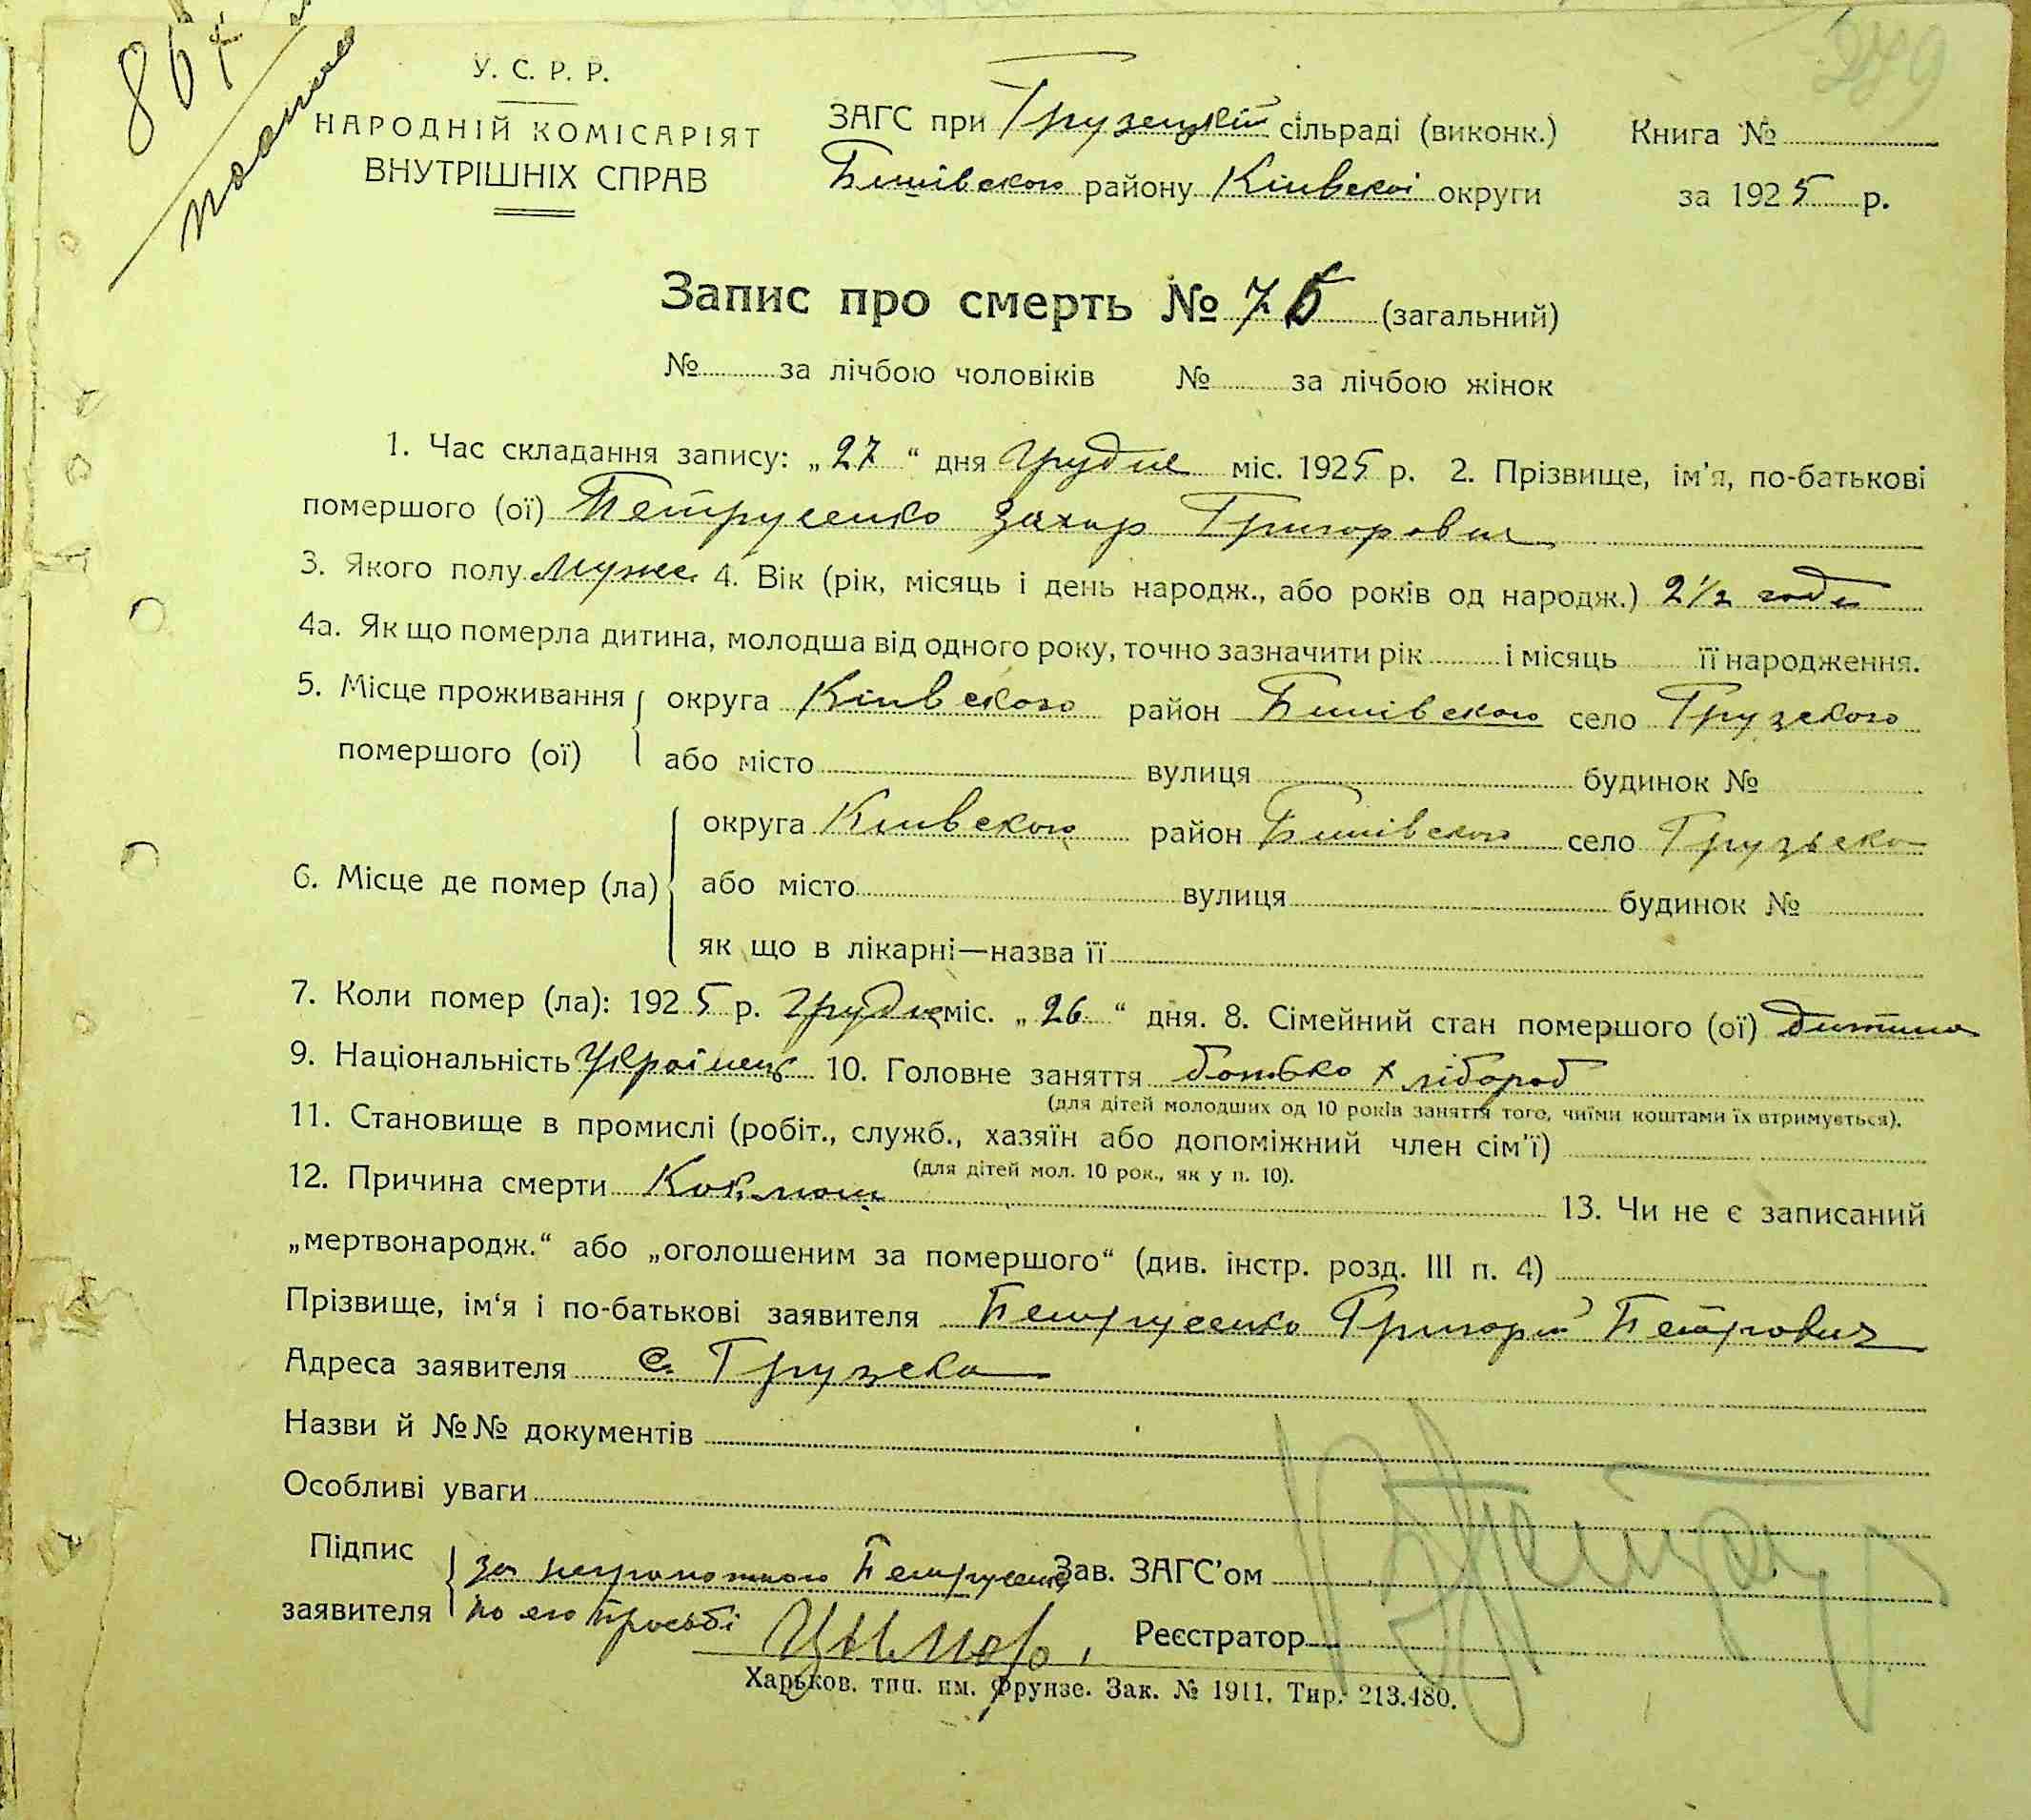 867
279
У. С. Р. Р.
НАРОДНІЙ КОМІСАРІЯТ
ВНУТРІШНІХ СПРАВ
ЗАГС при Грузецкій сільраді (виконк.)
Бишівского району Київскої округи
Книга №
за 1925 р.
Запис про смерть № 75 (загальний)
№ за лічбою чоловіків № за лічбою жінок
1. Час складання запису: „27“ дня Грудня міс. 1925 р. 2. Прізвище, ім'я, по-батькові
помершого (ої) Петрусенко Захар Григорович
3. Якого полу мужс. 4. Вік (рік, місяць і день народж., або років од народж.) 2½ годи
4а. Як що померла дитина, молодша від одного року, точно зазначити рік і місяць її народження.
5. Місце проживання помершого (ої) округа Київского район Бишівского село Грузского
або місто вулиця будинок №
6. Місце де помер (ла) округа Київского район Бишівского село Грузьско
або місто вулиця будинок №
як що в лікарні—назва її
7. Коли помер (ла): 1925 р. Грудня міс. „26“ дня. 8. Сімейний стан помершого (ої) дитина
9. Національність Українець 10. Головне заняття батько хлібороб
(для дітей молодших од 10 років заняття того, чиїми коштами їх втримується).
11. Становище в промислі (робіт., служб., хазяїн або допоміжний член сім'ї)
(для дітей мол. 10 рок., як у п. 10).
12. Причина смерти Коклюш 13. Чи не є записаний
„мертвонародж.“ або „оголошеним за помершого“ (див. інстр. розд. III п. 4)
Прізвище, ім‘я і по-батькові заявителя Петрусенко Григорій Петрович
Адреса заявителя с. Грузска
Назви й №№ документів
Особливі уваги
Підпис заявителя за неграмотного Петрусенко
по его просьбі
Зав. ЗАГС'ом
Реєстратор
Харьков. тип. им. Фрунзе. Зак. № 1911. Тир. 213.480.